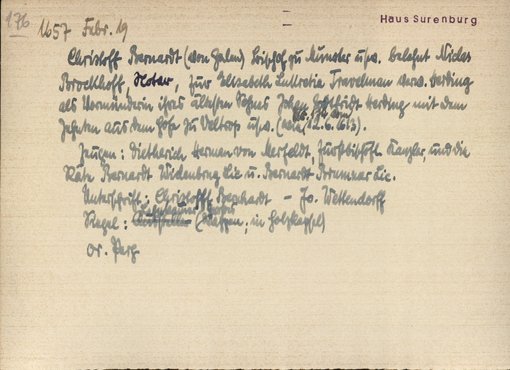 176
1657 Febr. 19
Haus Surenburg
Christoff Bernardt (von Galen) Bischof zu Münster usw. belehnt Niclas
Brockhoff, Notar, für Elisabeth Lukretia Travelman verw. Herding
als Vormünderin ihres ältesten Sohns Johan Gottfridt Herding mit dem
Zehnten aus dem Hofe zu Veltrup usw. 12.6.1613).
Zeugen: Dietherich Herman von Merfeldt, fürstbischöfl. Kanzler, und die
Räte Bernardt Widenbrug Lic. u. Bernardt Brummer Lic.
Unterschrift: Christoff Bernhardt – Jo. Wettendorff
Siegel: (Wappen, in Holzkapsel)
Or. Perg.